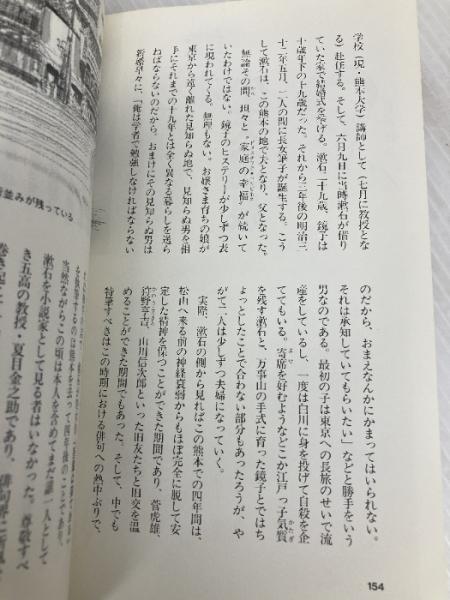 学校（現・熊本大学）講師として（七月に教授とな
る）赴任する。そして、六月九日に当時漱石が借り
ていた家で結婚式を挙げる。漱石二十九歳、鏡子は
十歳年下の十九歳だった。それから三年後の明治三
十二年五月、二人の間に長女筆子が誕生する。こう
して漱石は、この熊本の地で夫となり、父となった。
無論その間、坦々と〝家庭の幸福〟が続いて
いたわけではない。鏡子のヒステリーが少しずつ表
に現われてくる。無理もない。お嬢さま育ちの娘が
東京から遠く離れた見知らぬ地で、見知らぬ男を相
手にそれまでの十九年とは全く異なる暮らしを送ら
ねばならないのだから。おまけにその見知らぬ男は
新婚早々に、「俺は学者で勉強しなければならない
のだから、おまえなんかにかまってはいられない。
それは承知していてもらいたい」などと勝手をいう
男なのである。最初の子は東京への長旅のせいで流
産をしているし、一度は白川に身を投げて自殺を企
ててもいる。寄席を好むようなどこか江戸っ子気質
かたぎ
を残す漱石と、万事山の手式に育った鏡子とではち
ょっとしたことで合わない部分もあったろうが、や
がて二人は少しずつ夫婦になっていく。
実際、漱石の側から見ればこの熊本での四年間は、
松山へ来る前の神経衰弱からもほぼ完全に脱して安
定した精神を保つことができた期間であり、菅虎雄、
狩野亨吉、山川信次郎といった旧友たちと旧交を温
めることができた期間でもあった。そして、中でも
特筆すべきはこの時期における俳句への熱中ぶりで、
154
並みが残っている
四年後のことであり、
当然ながらこの頃は本人を含めてまだ誰一人として
漱石を小説家として見る者はいなかった。尊敬すべ
き五高の教授・夏目金之助であり、俳句界に